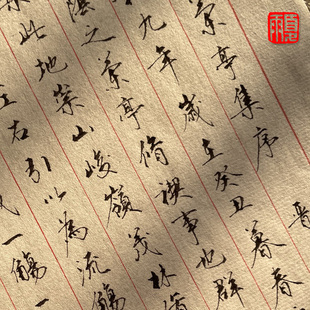 蘭亭集序 晉
九年歲在癸丑暮春
陰之蘭亭脩禊事也群
此地崇山峻嶺茂林脩
左右引以為流觴
一觴一